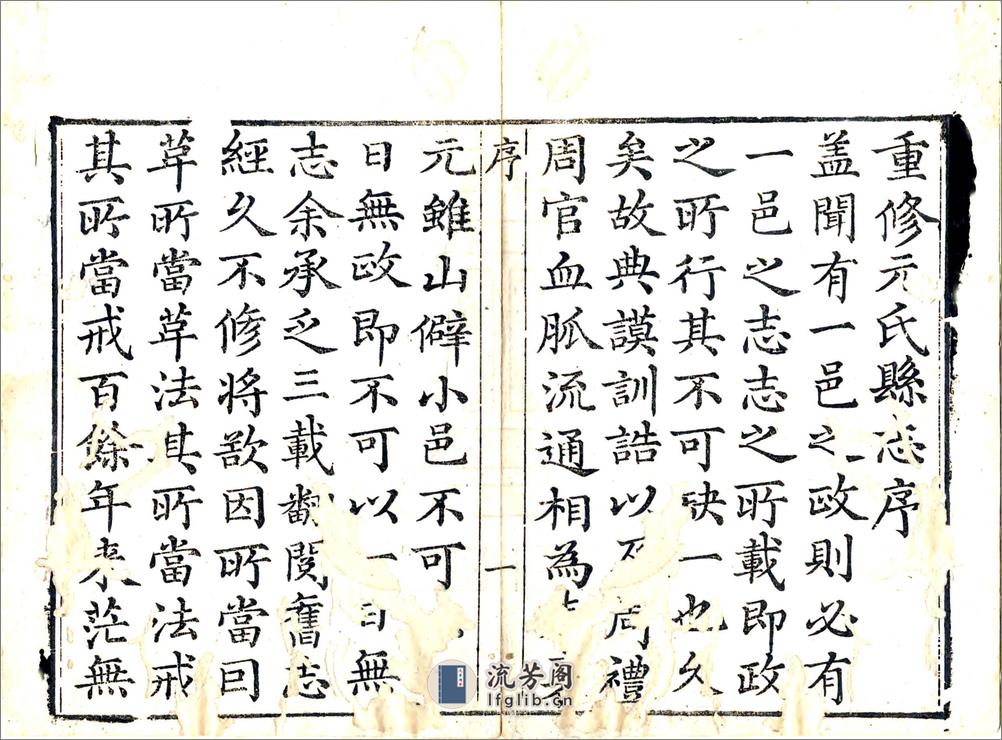 重修元氏縣志序
盖聞有一邑之政則必有
一邑之志志之所載即政
之所行其不可缺一也久
矣故典謨訓誥以周禮
周官血脈流通相為
序
一
元雖山僻小邑不可
日無政即不可以一日無
志余承乏三載翻閱舊志
經久不修将欲因所當因
革所當革法其所當法戒
其所當戒百餘年來茫無
流芳阁
lfglib.cn